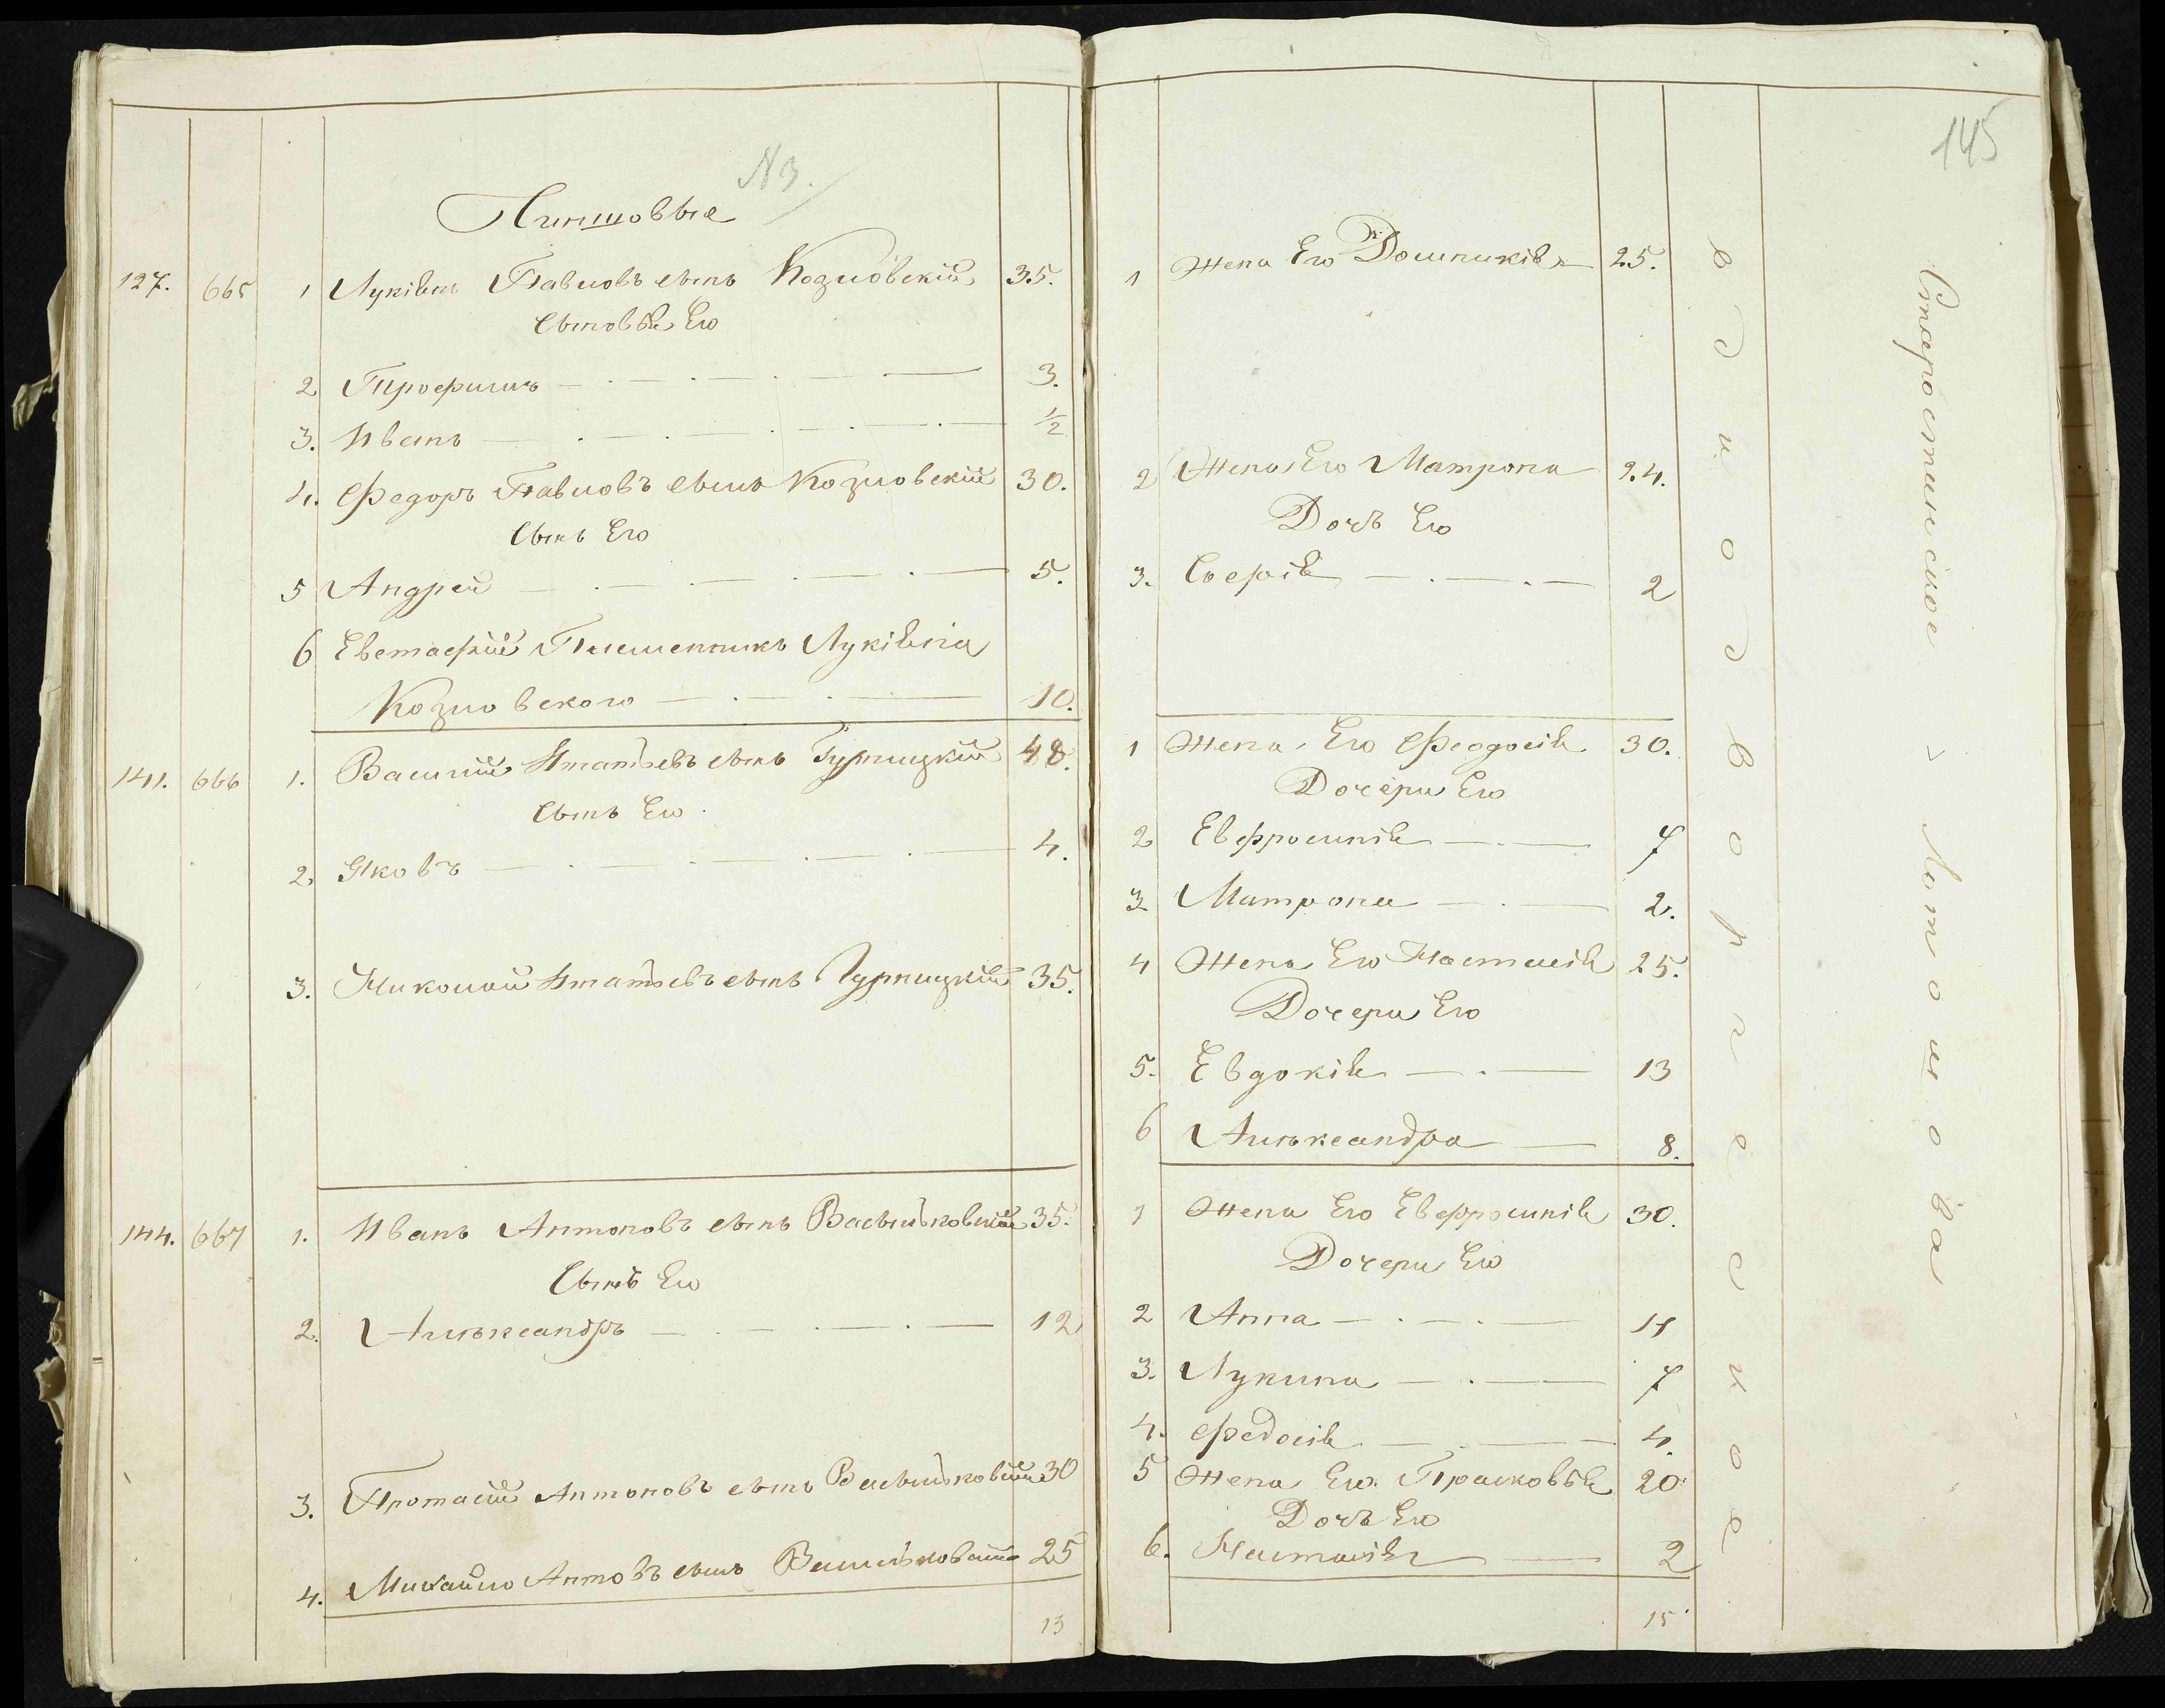 № 3.
Чиншовые
127. 665 1 Лукіянъ Павловъ сынъ Козловскій 35.
Сыновья Его
2 Трофимъ 3.
3. Иванъ ½
4. Федоръ Павловъ сынъ Козловскій 30.
Сынъ Его
5 Андрей 5.
6 Евстафій Племенникъ Лукіяна
Козловского 10.
141. 666 1. Василій Игнатьевъ сынъ Гурницкій 48.
Сынъ Его
2. Яковъ 4.
3. Николай Игнатьевъ сынъ Гурницкій 35.
144. 667 1. Иванъ Антоновъ сынъ Васильковскій 35.
Сынъ Его
2. Александръ 12
3. Протасій Антоновъ сынъ 30
4. Михайло Антовъ сынъ 25
13
145
1 Жена Его Домникія 25.
2 Жена Его Матрона 24.
Дочь Его
3. Софія 2
1 Жена Его Феодосія 30.
Дочери Его
2 Евфросинія 7
3 Матрона 2.
4 Жена Его Настасія 25.
Дочери Его
5. Евдокія 13
6 Александра 8.
1 Жена Его Евфросинія 30.
Дочери Его
2 Анна 11
3. Лукина 7
4. Федосія 4.
5 Жена Его Прасковья 20
Дочь Его
6. Настасія 2
15
Старостинское